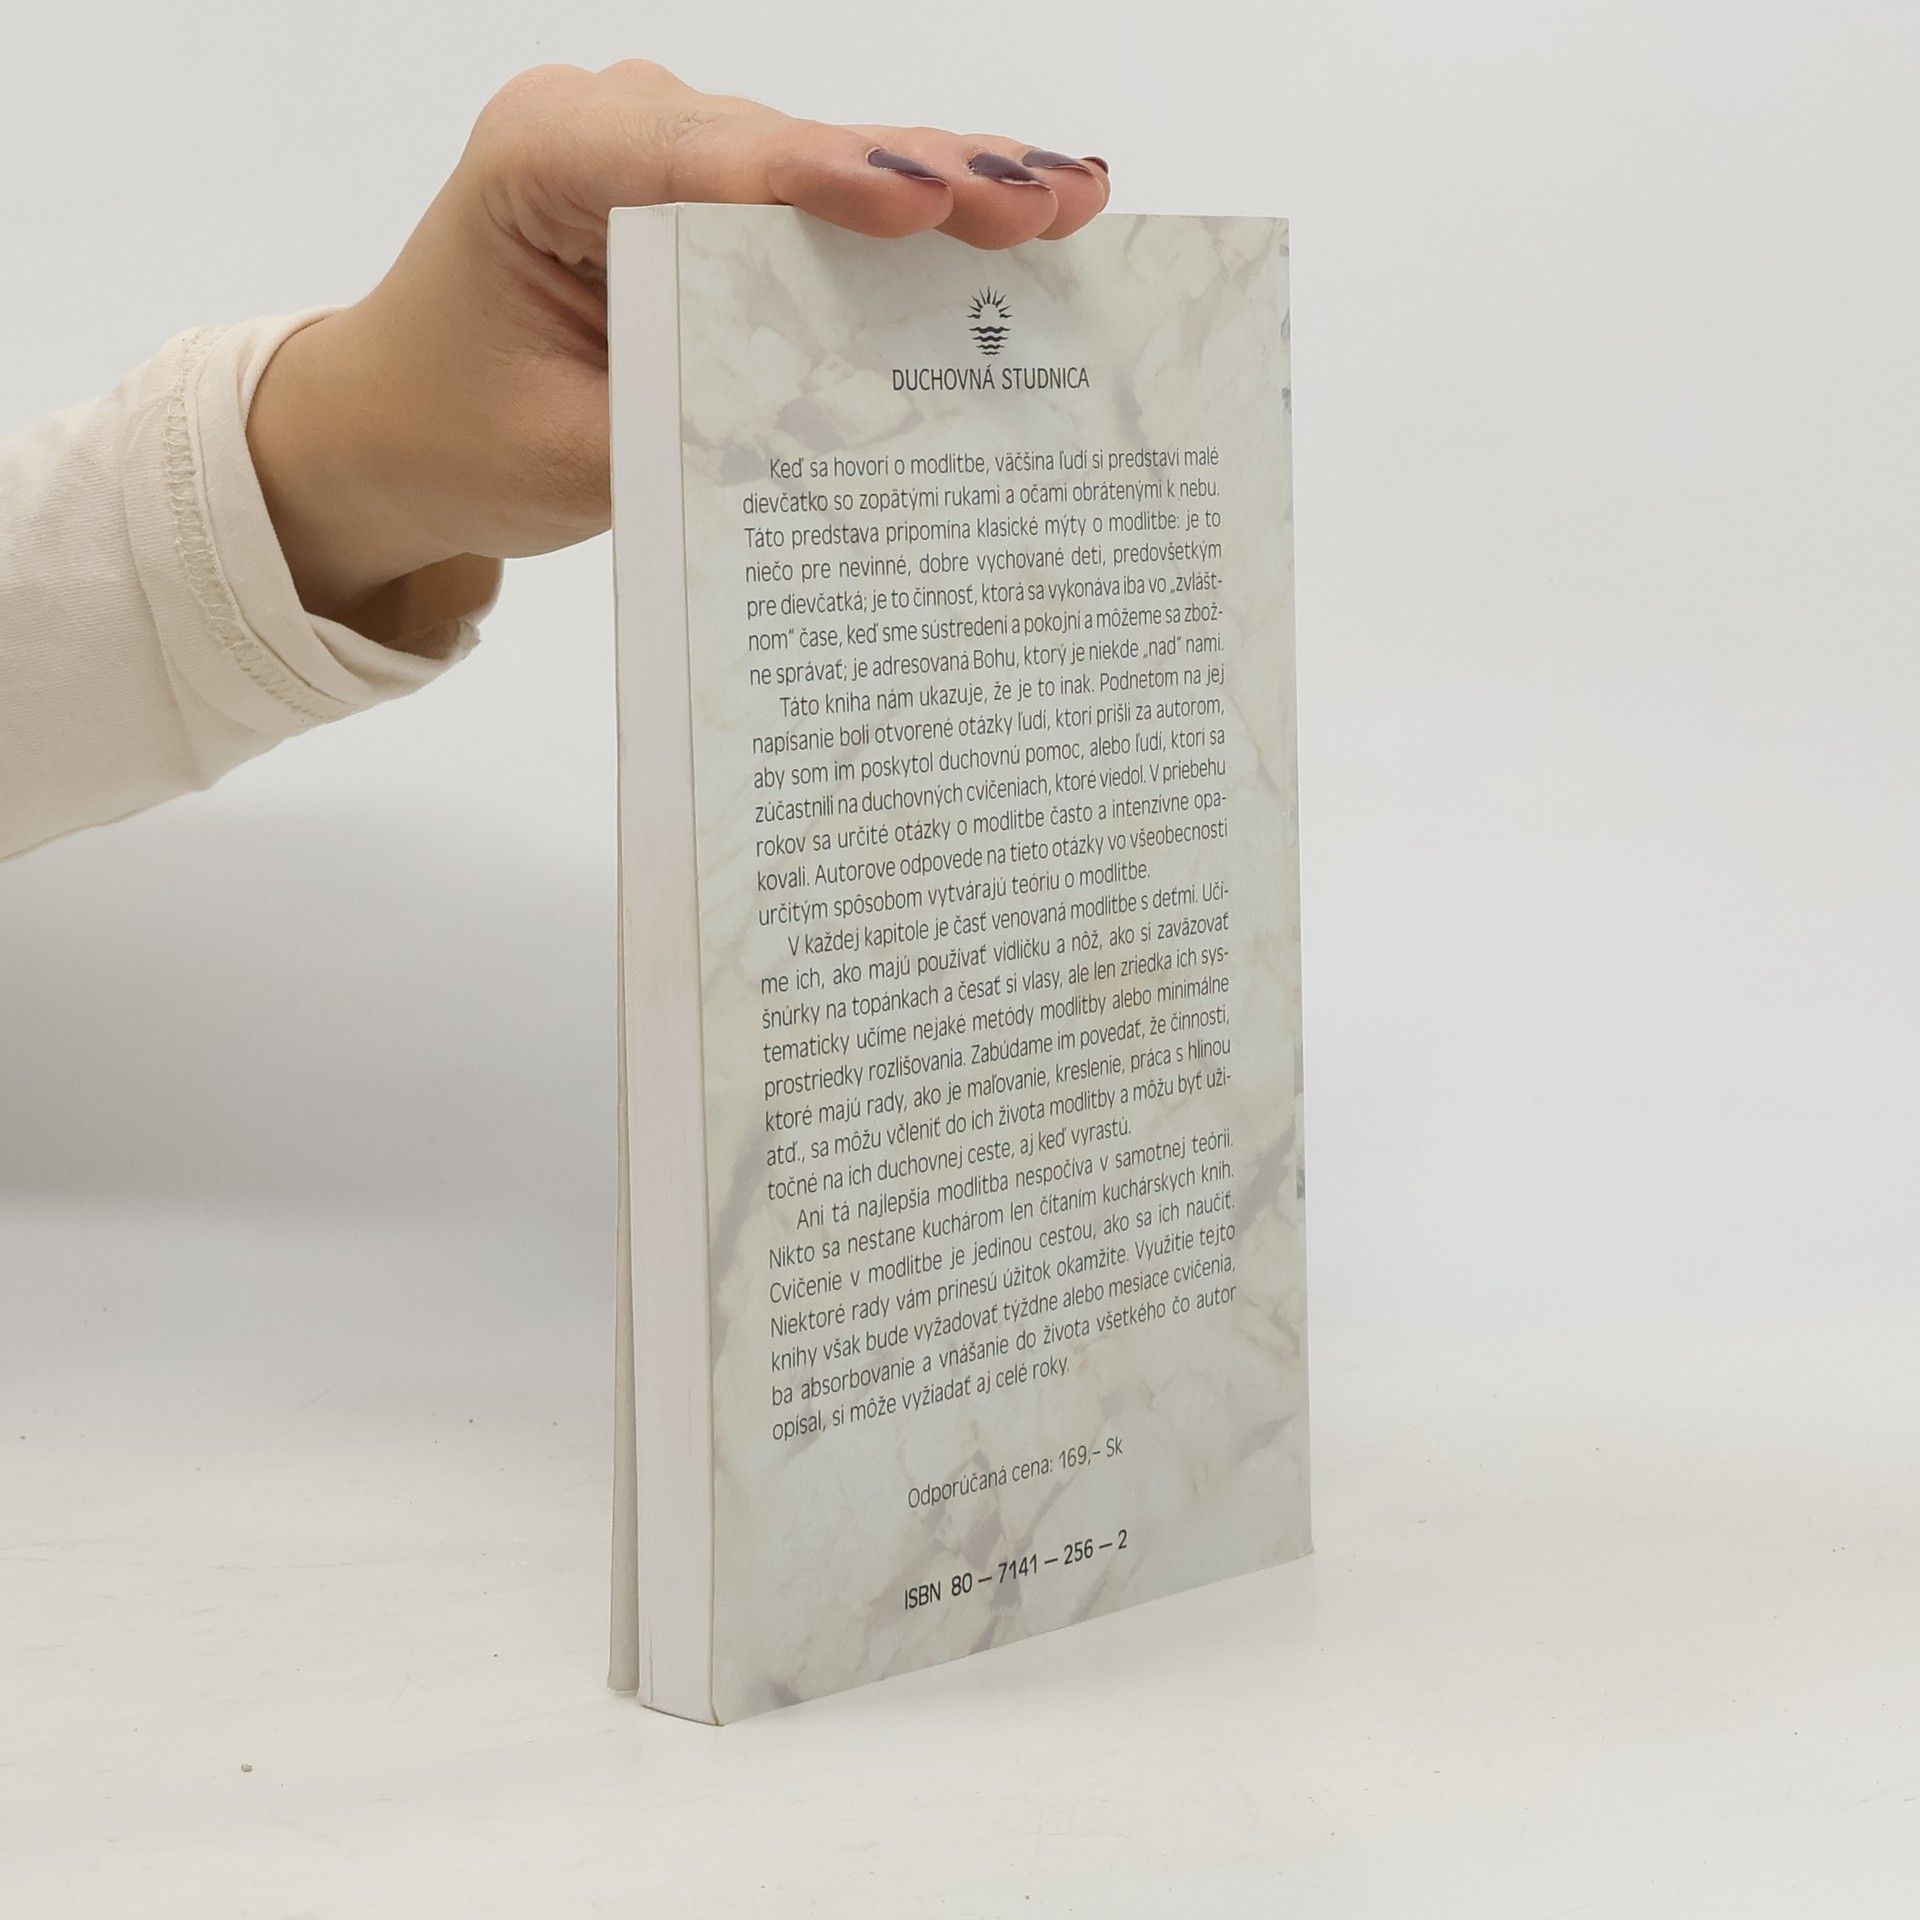 DUCHOVNÁ STUDNICA
Keď sa hovorí o modlitbe, väčšina ľudí si predstaví malé
dievčatko so zopätými rukami a očami obrátenými k nebu.
Táto predstava pripomína klasické mýty o modlitbe: je to
niečo pre nevinné, dobre vychované deti, predovšetkým
pre dievčatká; je to činnosť, ktorá sa vykonáva iba vo „zvlášt-
nom“ čase, keď sme sústredení a pokojní a môžeme sa zbož-
ne správať; je adresovaná Bohu, ktorý je niekde „nad“ nami.
Táto kniha nám ukazuje, že je to inak. Podnetom na jej
napísanie boli otvorené otázky ľudí, ktorí prišli za autorom,
aby som im poskytol duchovnú pomoc, alebo ľudí, ktorí sa
zúčastnili na duchovných cvičeniach, ktoré viedol. V priebehu
rokov sa určité otázky o modlitbe často a intenzívne opa-
kovali. Autorove odpovede na tieto otázky vo všeobecnosti
určitým spôsobom vytvárajú teóriu o modlitbe.
V každej kapitole je časť venovaná modlitbe s deťmi. Učí-
me ich, ako majú používať vidličku a nôž, ako si zaväzovať
šnúrky na topánkach a česať si vlasy, ale len zriedka ich sys-
tematicky učíme nejaké metódy modlitby alebo minimálne
prostriedky rozlišovania. Zabúdame im povedať, že činnosti,
ktoré majú rady, ako je maľovanie, kreslenie, práca s hlinou
atď., sa môžu včleniť do ich života modlitby a môžu byť uži-
točné na ich duchovnej ceste, aj keď vyrastú.
Ani tá najlepšia modlitba nespočíva v samotnej teórii.
Nikto sa nestane kuchárom len čítaním kuchárskych kníh.
Cvičenie v modlitbe je jedinou cestou, ako sa ich naučiť.
Niektoré rady vám prinesú úžitok okamžite. Využitie tejto
knihy však bude vyžadovať týždne alebo mesiace cvičenia,
ba absorbovanie a vnášanie do života všetkého čo autor
opísal, si môže vyžiadať aj celé roky.
Odporúčaná cena: 169,– Sk
ISBN 80 – 7141 – 256 – 2